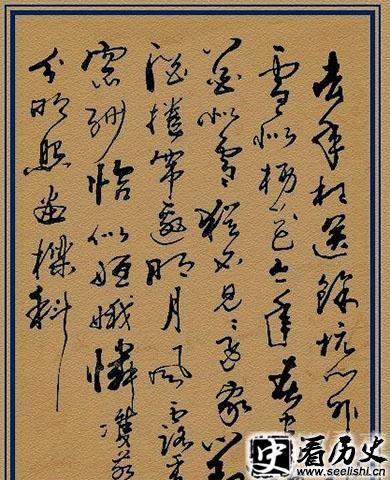 去年相送餘杭門外
雪似楊花今年春
花似雪猶不見還家對
酒捲簾邀明月風露透
窗紗恰似姮娥憐雙燕
分明照畫樑斜
史 看历史
www.seelishi.cn